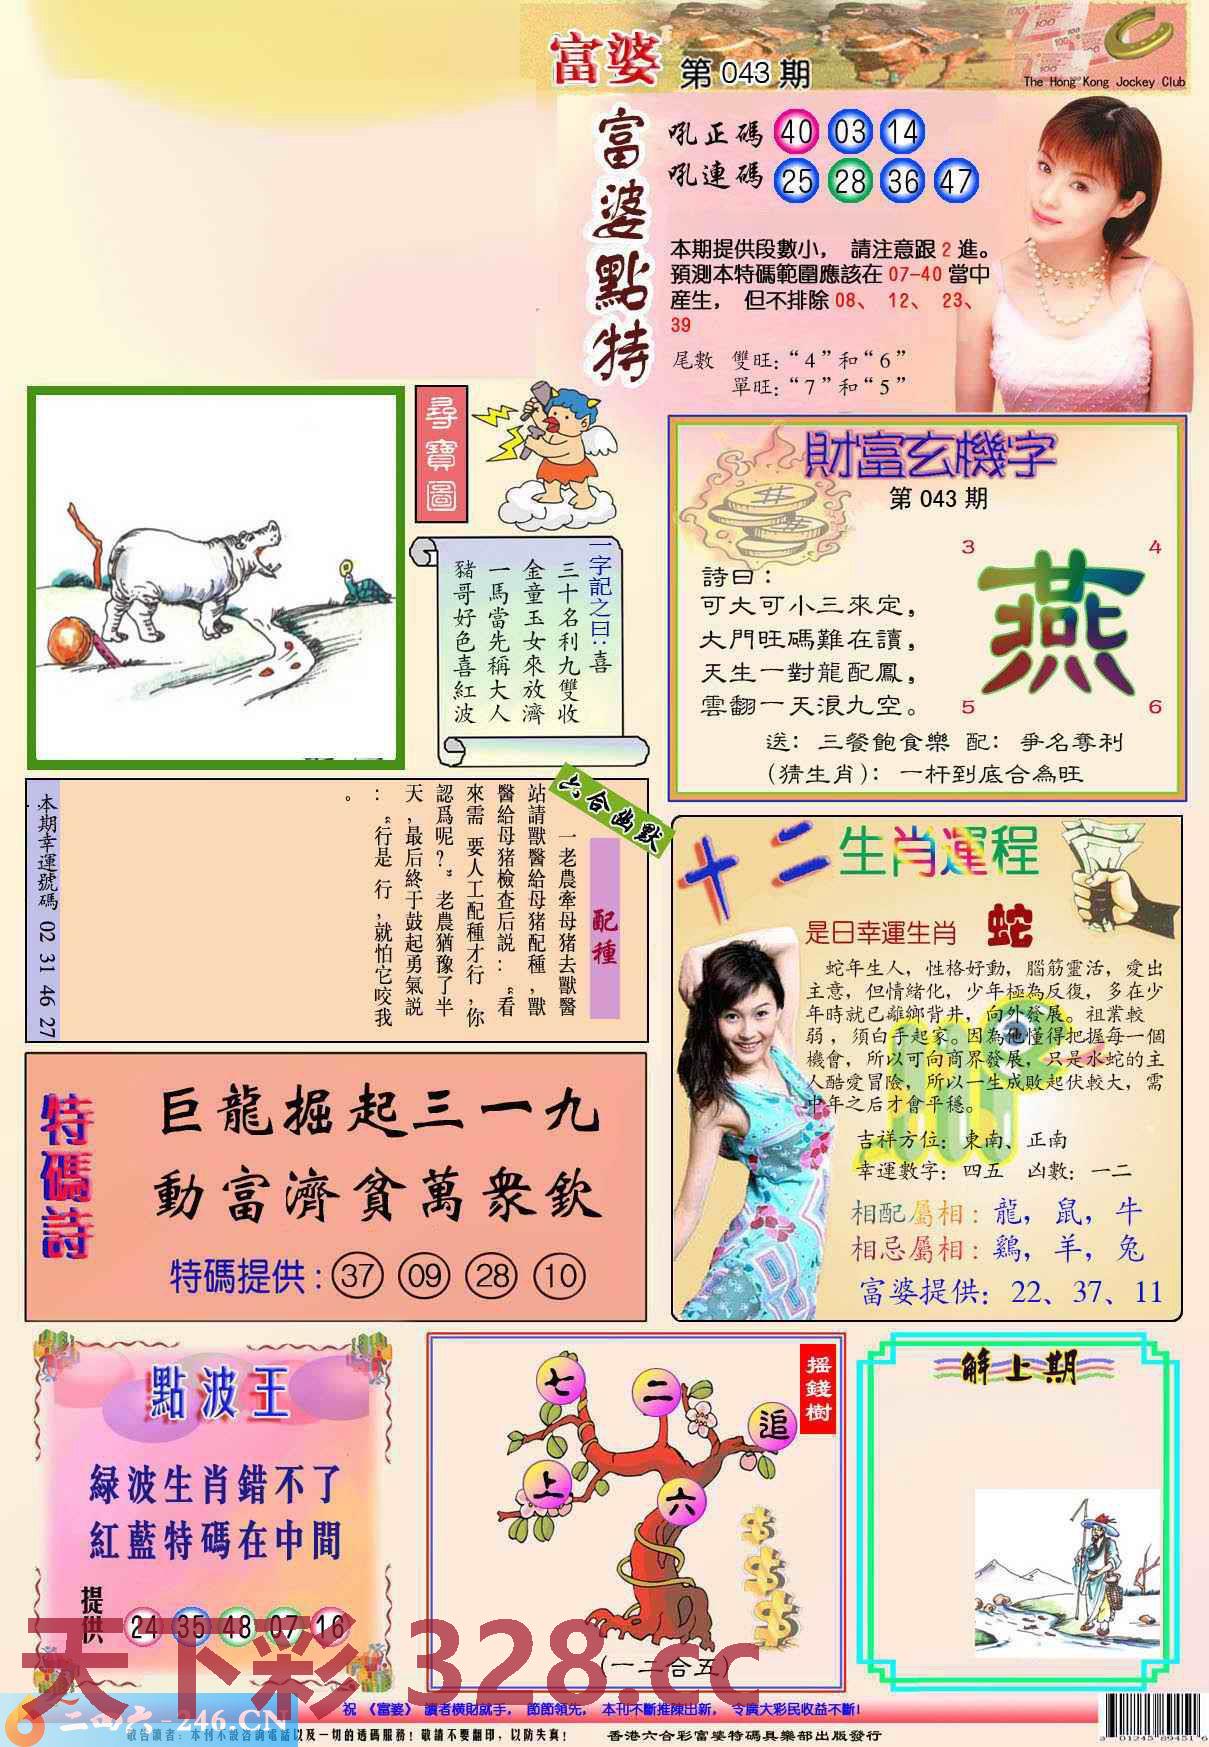 富婆 第043期
The Hong Kong Jockey Club
富婆點特
吼正碼 40 03 14
吼連碼 25 28 36 47
本期提供段數小， 請注意跟 2 進。
預測本特碼範圍應該在 07-40 當中
産生， 但不排除 08、 12、 23、
39
尾數 雙旺：“4”和“6”
單旺：“7”和“5”
尋寶圖
一字記之曰：喜
三十名利九雙收
金童玉女來放濟
一馬當先稱大人
豬哥好色喜紅波
財富玄機字
第 043 期
3 4
燕
5 6
詩曰：
可大可小三來定，
大門旺碼難在讀，
天生一對龍配鳳，
雲翻一天浪九空。
送：三餐飽食樂 配：爭名奪利
(猜生肖)：一杆到底合為旺
六合幽默
配種
一老農牽母猪去獸醫
站請獸醫給母猪配種，獸
醫給母猪檢查后説：“看
來需 要人工配種才行，你
認爲呢？”老農猶豫了半
天，最后終于鼓起勇氣説
：“行是 行，就怕它咬我
。
本期幸運號碼 02 31 46 27
十二生肖運程
是日幸運生肖 蛇
蛇年生人，性格好動，腦筋靈活，愛出
主意，但情緒化，少年極為反復，多在少
年時就已離鄉背井，向外發展。祖業較
弱，須白手起家。因為他懂得把握每一個
機會，所以可向商界發展，只是水蛇的主
人酷愛冒險，所以一生成敗起伏較大，需
中年之后才會平穩。
吉祥方位：東南、正南
幸運數字：四五 凶數：一二
相配屬相：龍，鼠，牛
相忌屬相：鷄，羊，兔
富婆提供：22、37、11
特碼詩
巨龍掘起三一九
動富濟貧萬衆欽
特碼提供：37 09 28 10
點波王
緑波生肖錯不了
紅藍特碼在中間
提供 24 35 48 07 16
搖錢樹
七 二 追
上 六
(一二合五)
解上期
天下彩 328.cc
二四六-246.CN
祝《富婆》讀者横財就手， 節節領先， 本刊不斷推陳出新， 令廣大彩民收益不斷！
敬告讀者：本刊不設咨詢電話以及一切的透碼服務！敬請不要翻印，以防失真！ 香港六合彩富婆特碼具樂部出版發行
3 01245 89451 6